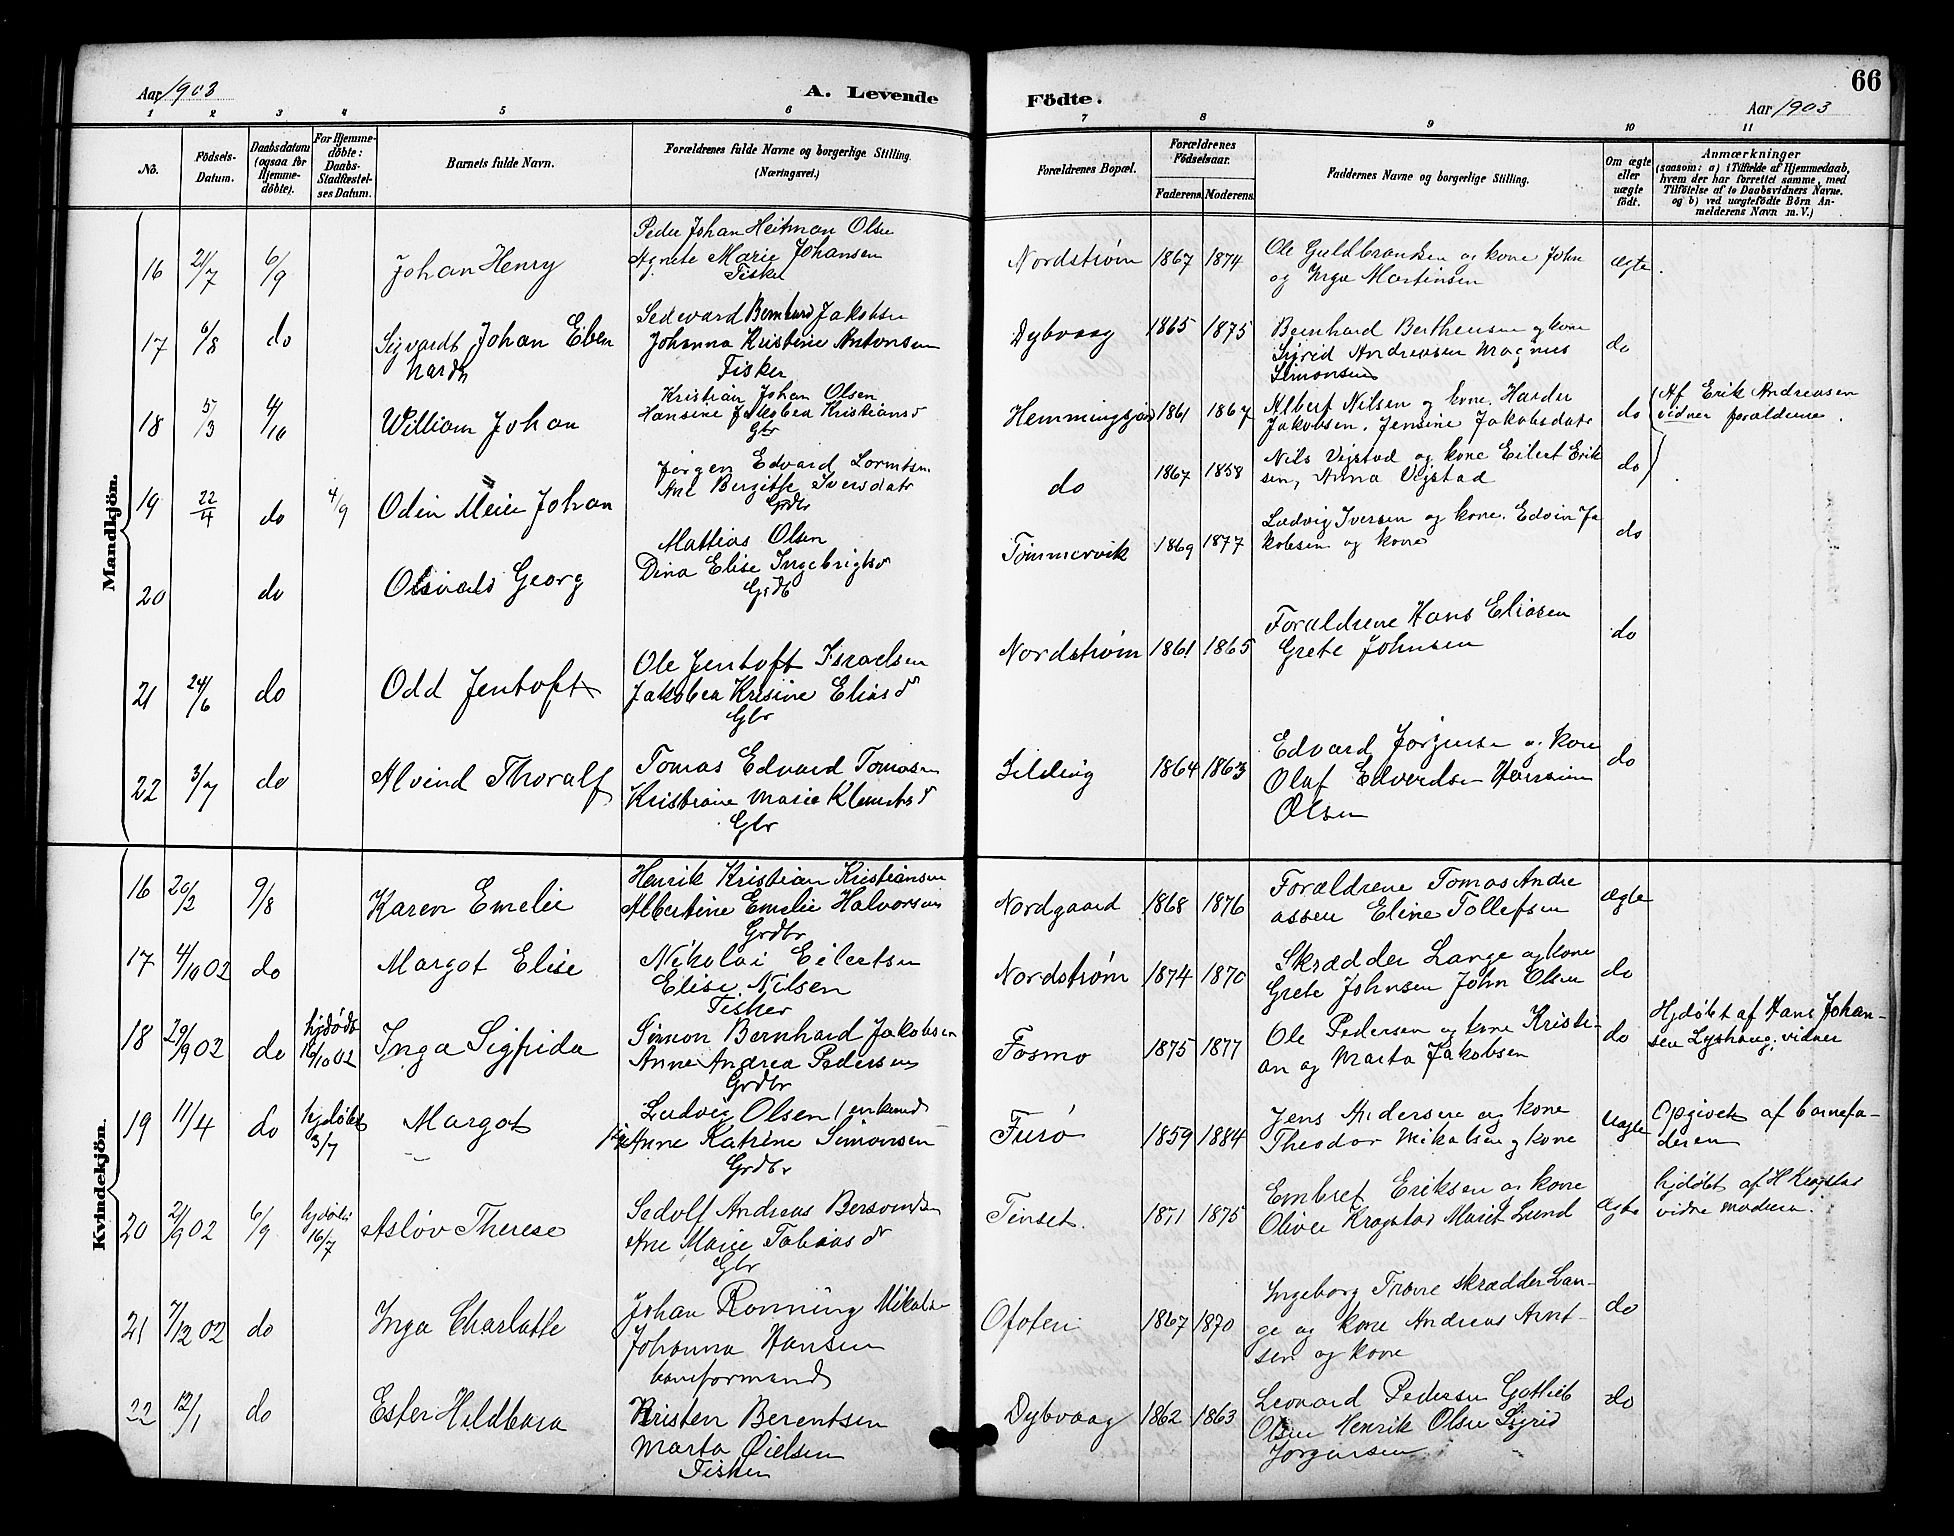 66
Aar 1903
A. Levende
Födte.
Aar 1903
1 2 3 4 5 6 7 8 9 10 11
No.
Födsels-Datum.
Daabsdatum (ogsaa for Hjemmedöbte).
For Hjemmedöbte: Daabs-Stadfæstelses Datum.
Barnets fulde Navn.
Forældrenes fulde Navne og borgerlige Stilling.
(Næringsvei.)
Forældrenes Bopæl.
Forældrenes Födselsaar.
Faderens. Moderens.
Faddernes Navne og borgerlige Stilling.
Om ægte eller uægte födt.
Anmærkninger
(saasom: a) i Tilfælde af Hjemmedaab,
hvem der har forrettet samme, med
Tilföielse af to Daabsvidners Navne.
og b) ved uægtefödte Börn Anmelderens Navn m. V.)
Mandkjön.
16 21/7 6/9 Johan Henry
Peder Johan Heitman Olsen
Agnete Marie Johansen
Fisker
Nordstrøm 1867 1874
Ole Guldbrandsen og kone John
og Inga Martinsen
ægte
17 6/8 do Sigvardt Johan Eben
hardh
Sedevard Bernhard Jakobsen
Johanna Kristine Antonsen
Fisker
Dybvaag 1865 1875
Bernhard Berthensen og kone
Sigrid Andreasen Magnus
Simonsen
do
18 5/3 4/10 William Johan
Kristian Johan Olsen
Hansine Jakobea Kristiansd
Gbr
Hemmingsjord 1861 1867
Albert Nilsen og kone. Harder
Jakobsen. Jensine Jakobsdatr
do
Af Erik Andreasen
vidner forældrene.
19 22/4 do 4/9 Odin Meier Johan
Jørgen Edvard Lorentsen
Ane Bergitte Iversdatr
Grdbr
do 1867 1858
Nils Vejstad og kone Eilert Erik
sen, Anna Vejstad
do
20 do Olsvald Georg
Mattias Olsen
Dina Elise Ingebrigtsd
Grdb
Tømmervik 1869 1877
Ludvig Iversen og kone. Edvin Ja
kobsen og kone
do
21 24/6 do Odd Jentoft
Ole Jentoft Israelsen
Jakobea Krisine Eliasd
Gbr
Nordstrøm 1861 1865
Forældrene Hans Eliasen
Grete Johnsen
do
22 3/7 do Alvind Thoralf
Tomas Edvard Tomasen
Kristiane Marie Klemetsd
Gbr
1864 1863
Edvard Jørgensen og kone
Olaf Edvardsen
Olsen
do
Kvindekjön.
16 20/2 9/8 Karen Emelie
Henrik Kristian Kristiansen
Albertine Emelie Halvorsen
Grdbr
Nordgaard 1868 1876
Forældrene Tomas Andre
assen Eline Tollefsen
ægte
17 4/10 02 do Margot Elise
Nikolai Eilertsen
Elise Nilsen
Fisker
Nordstrøm 1874 1870
Skrædder Lange og kone
Grete Johnsen John Olsen
do
18 29/9 02 do hjdøbt 16/10 02 Inga Sigfrida
Simon Bernhard Jakobsen
Anne Andrea Pedersen
Grdbr
Fosmo 1875 1877
Ole Pedersen og kone Kristi-
an og Marta Jakobsen
do
Hjdøbt af Hans Johan-
sen Lyshaug, vidner
19 11/4 do hjdøbt 3/7 Margot
Ludvig Olsen /enkemd
Anne Katrine Simonsen
Grdbr
Furø 1859 1884
Jens Andersen og kone
Theodor Mikalsen og kone
Uægte
Opgivet af barnefa-
deren
20 21/9 02 6/9 hjdøbt 16/7 Asløv Therese
Sedolf Andreas Bersvendsen
Ane Marie Tobiasd
Gbr
Tinset. 1871 1875
Embret Eriksen og kone
Oliver Kragstad Marit Lund
Ægte
hjdøbt af H Kragstad
vidne moderen.
21 7/12 02 do Inga Charlotte
Johan Rønning Mikalsen
Johanna Hansen
baneformand
Ofoten 1867 1870
Ingeborg Trane skrædder Lan-
ge og kone Andreas Arnt-
sen og kone
do
22 12/1 do Ester Hildbara
Kristen Berentsen
Marta Oielsen
Fisker
Dybvaag 1862 1863
Leonard Pedersen Gotlieb
Olsen Henrik Olsen Sigrid
Jørgensen
do